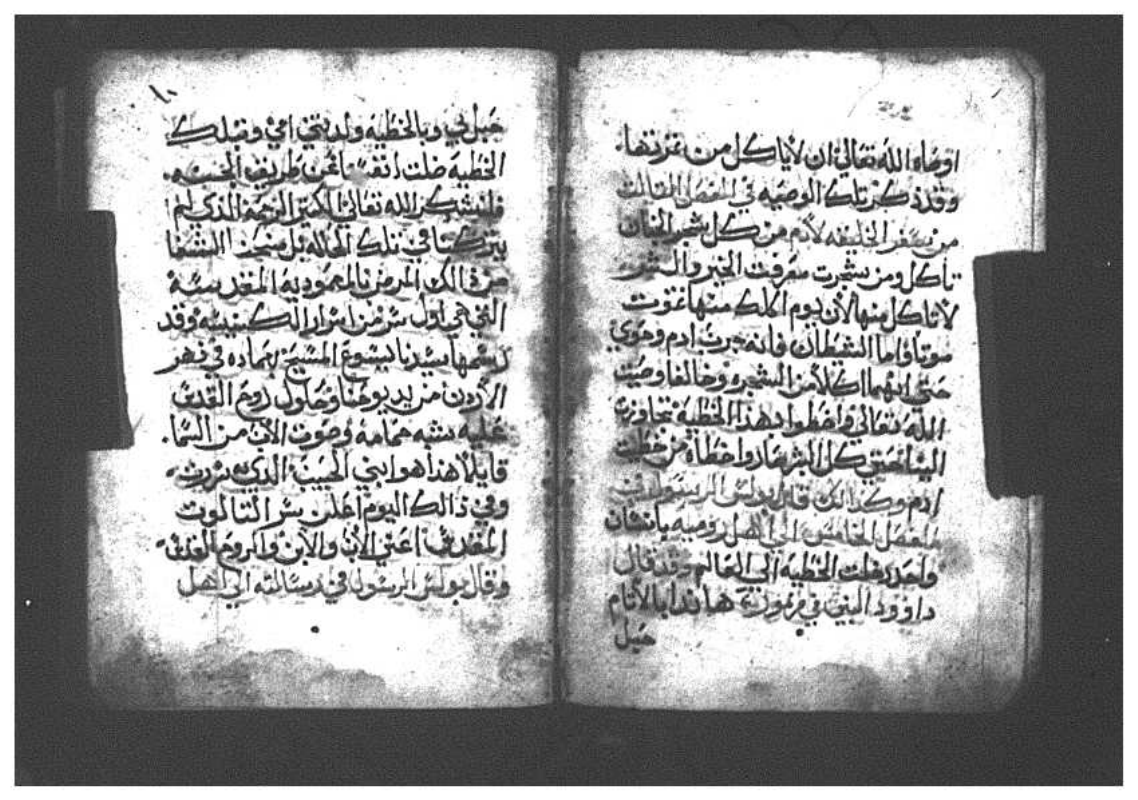 اوصاه الله تعالي ان لا ياكل من تمرتها.
وقد ذكر تلك الوصيه في الفصل التالت
من سفر الخليقه لادم من كل شجر الجنان
تاكل ومن شجرت معرفت الخير والشر
لا تاكل منها لان يوم اكلك منها تموت
موتا فاما الشيطان فانه جرب ادم وحوي
حتي انهما اكلا من الشجره وخالفا وصيت
الله تعالي واخطوا وهذا الخطية تجاوزت
الينا حتي كل البشر صاروا خطاة من خطيت
ادم وكذالك قال بولس الرسول في
الفصل الخامس الي اهل روميه بانسان
واحد دخلت الخطيه الي العالم وقد قال
داوود النبي في مزموره هانذا بالاتام
حبل
١٠
حبل بي وبالخطيه ولدتني امي وتلك
الخطيه ضلت عن طريق
فلنشكر الله تعالي الكتير الرحمة الذي لم
يتركنا في تلك الحاله بل منحنا الشفا
من ذالك المرض بالمعموديه المقدسة
التي هي اول سر من اسرار الكنيسه وقد
رسمها سيدنا يسوع المسيح بعماده في نهر
الاردن من يد يوحنا وحلول روح القدس
عليه بشبه حمامه وصوت الاب من السما.
قايلا هذا هو ابني الحبيب الذي به سررت
وفي ذالك اليوم اعلن سر التالوت
المقدس اعني الاب والابن والروح القدس
وقال بولس الرسول في رسالته الي اهل